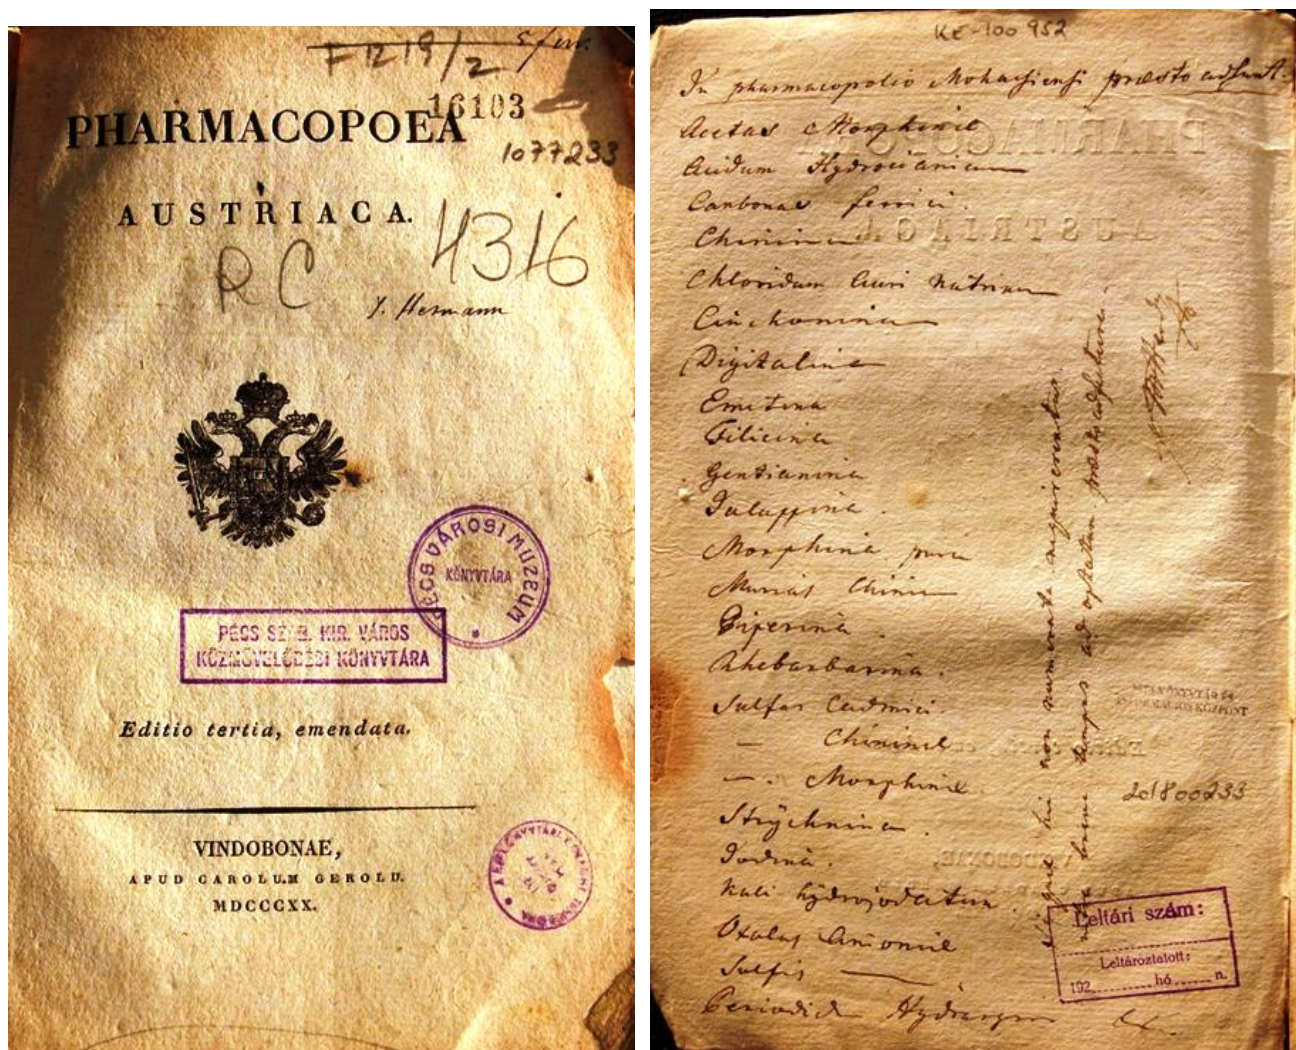 F1219/2
16103
PHARMACOPOEA
1077233
AUSTRIACA.
4316
RC
J. Hermann
PÉCS VÁROSI MUZEUM
KÖNYVTÁRA
PÉCS SZAB. KIR. VÁROS
KÖZMŰVELŐDÉSI KÖNYVTÁRA
Editio tertia, emendata.
VINDOBONAE,
APUD CAROLUM GEROLD.
MDCCCXX.
KE-100 952
In pharmacopolio Mohacsiensi praesto adsunt.
Acetas Morphinae
Acidum Hydrocianicum
Carbonas ferrici.
Chinina
Chloridum Auri Natrium
Cinchonina
Digitalina
Emetina
Filicina
Gentianina
Jalappina.
Morphina pura
Murias Chinin
Piperina.
Rhebarbarina.
Sulfas Cadmici.
— Chininae
—. Morphinae
Strychnina.
Jodina.
Kali hydrojodatum.
Oxalas Amoniae
Sulfis —
Hydrargyr
hic non numerata
brevi tempus ad optatum
201800233
Leltári szám:
Leltároztatott:
192 hó n.